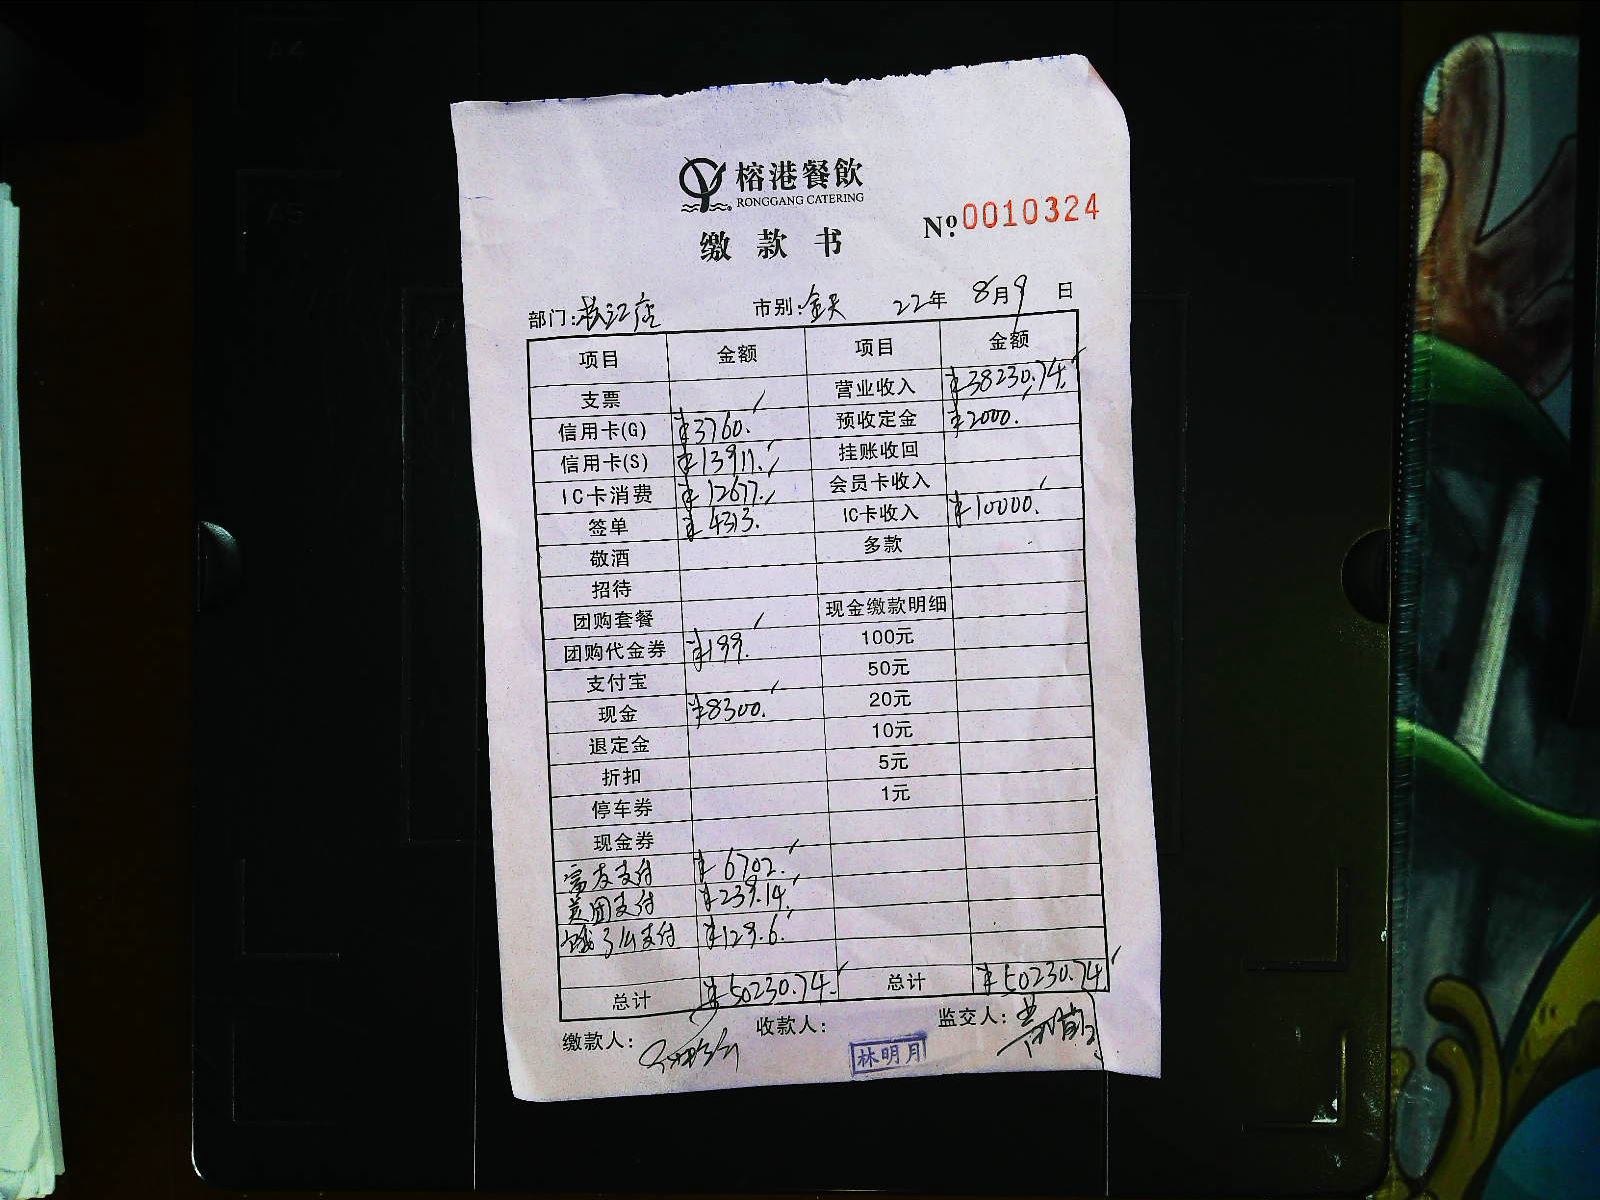 榕港餐飲
RONGGANG CATERING
缴款书
№ 0010324
部门: 江店 市别: 全天 22年 8月9日
项目 金额 项目 金额
支票 营业收入 ¥38230.74
信用卡(G) ¥3760. 预收定金 ¥2000.
信用卡(S) ¥13911. 挂账收回
IC卡消费 ¥12677. 会员卡收入
签单 ¥4313. IC卡收入 ¥10000.
敬酒 多款
招待
团购套餐 现金缴款明细
团购代金券 ¥199. 100元
支付宝 50元
现金 ¥8300. 20元
退定金 10元
折扣 5元
停车券 1元
现金券
富友支付 ¥6702.
美团支付 ¥239.14
饿了么支付 ¥129.6
总计 ¥50230.74 总计 ¥50230.74
缴款人: 收款人: 林明月 监交人: